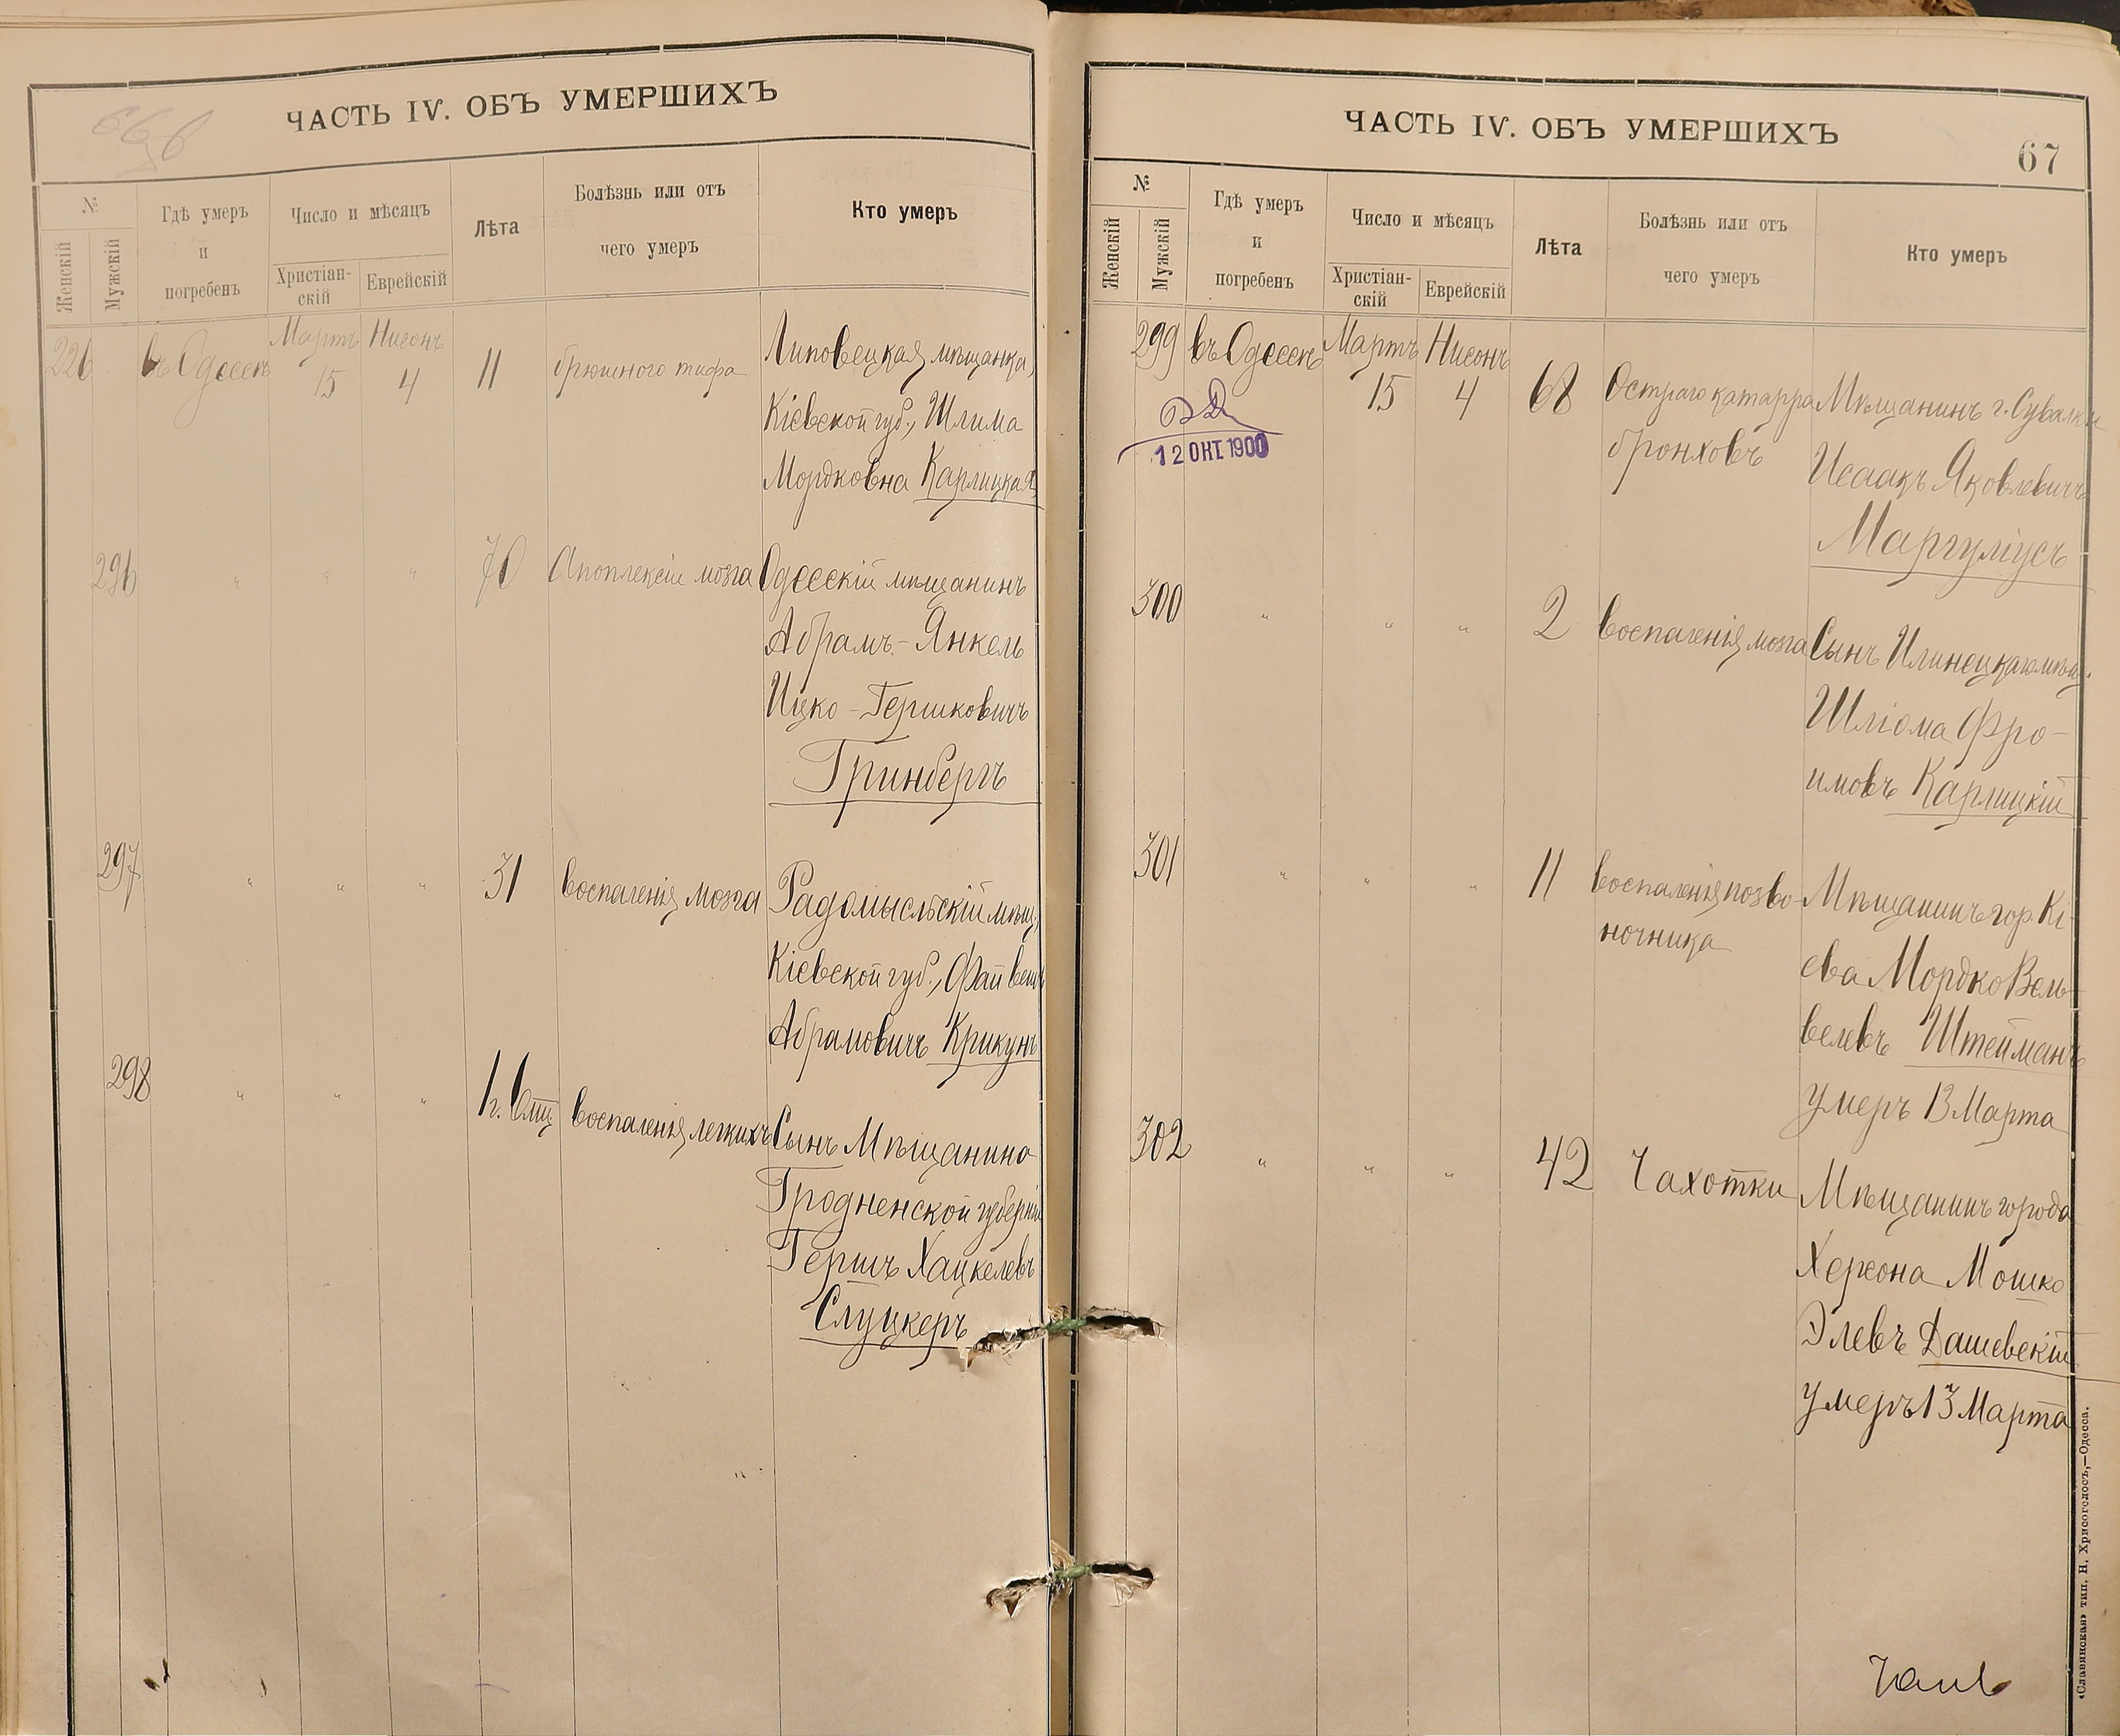 ЧАСТЬ IV. ОБЪ УМЕРШИХЪ
№
Женскій
Мужскій
Гдѣ умеръ
и
погребенъ
Число и мѣсяцъ
Христіан-
скій
Еврейскій
Лѣта
Болѣзнь или отъ
чего умеръ
Кто умеръ
226 въ Одессѣ Мартъ 15 Нисонъ 4 11 брюшного тифа Липовецкая мѣщанка,
Кіевской губ., Шлима
Мордковна Карлицкая
296 " " " 70 Апоплексіи мозга Одесскій мѣщанинъ
Абрамъ-Янкель
Ицко-Гершковичъ
Гринбергъ
297 " " " 31 воспаленія мозга Радомысльскій мѣщ.,
Кіевской губ., Файвель
Абрамовичъ Крикунъ
298 " " " 1 г. 6 мц воспаленія легкихъ Сынъ Мѣщанина
Гродненской губерніи
Гершъ Хацкелевъ
Слуцкеръ
ЧАСТЬ IV. ОБЪ УМЕРШИХЪ
67
№
Женскій
Мужскій
Гдѣ умеръ
и
погребенъ
Число и мѣсяцъ
Христіан-
скій
Еврейскій
Лѣта
Болѣзнь или отъ
чего умеръ
Кто умеръ
299 въ Одессѣ Мартъ 15 Нисонъ 4 68 Остраго катарра Мѣщанинъ г. Сувалки
12 ОКТ. 1900
бронховъ Исаакъ Яковлевичъ
Маргуліусъ
300 " " " 2 воспаленія мозга Сынъ Илинецкаго мѣщ.
Шліома Фро-
имовъ Карлицкій
301 " " " 11 воспаленія позво- Мѣщанинъ гор. Кі-
ночника ева Мордко Вель-
велевъ Штейманъ
умеръ 13 Марта
302 " " " 42 Чахотки Мѣщанинъ города
Херсона Мошко
Элевъ Дашевскій
умеръ 13 Марта
«Славянская» тип. Н. Хрисогелосъ,—Одесса.